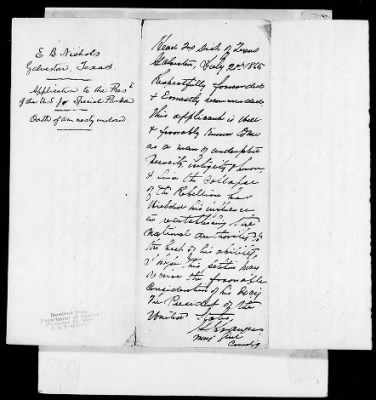 E. B. Nichols
Galveston, Texas.
Application to the Prest
of the U.S. for Special Pardon
Oath of amnesty inclosed
Head Qrs Dist of Texas
Galveston, July 2nd 1865
Respectfully forwarded
& Earnestly recommended
This applicant is well
& favorably known
as a man of undoubted
veracity, integrity & honor,
& since the collapse
of the Rebellion has
wielded his influence
in reestablishing the
national authority to
the best of his ability,
I hope this petition may
receive the favorable
consideration of his Excy
The President of the
United States,
Maj Genl
Comdg
Received from
Department of Justice